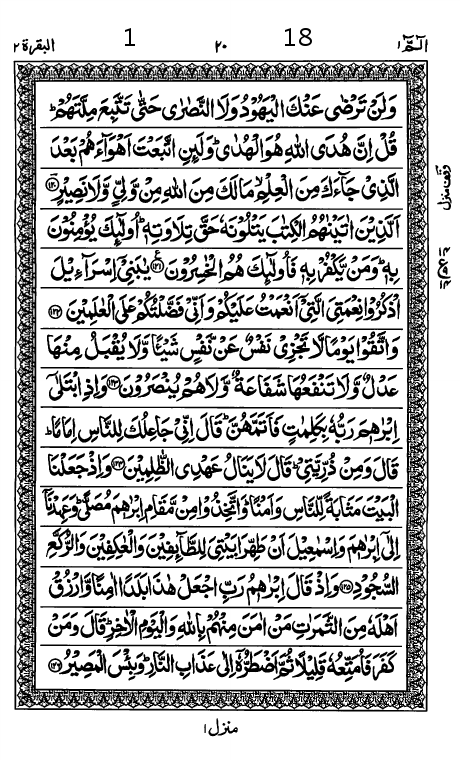 الٓمّٓ ١ 18 ٢٠ 1 البقرة ٢
وَلَنْ تَرْضٰى عَنْكَ الْيَهُوْدُ وَلَا النَّصٰرٰى حَتّٰى تَتَّبِعَ مِلَّتَهُمْ ؕ
قُلْ اِنَّ هُدَى اللّٰهِ هُوَ الْهُدٰى ؕ وَلَىِٕنِ اتَّبَعْتَ اَهْوَآءَهُمْ بَعْدَ
الَّذِيْ جَآءَكَ مِنَ الْعِلْمِ ۙ مَا لَكَ مِنَ اللّٰهِ مِنْ وَّلِيٍّ وَّلَا نَصِيْرٍ ﴿١٢٠﴾
اَلَّذِيْنَ اٰتَيْنٰهُمُ الْكِتٰبَ يَتْلُوْنَهٗ حَقَّ تِلَاوَتِهٖ ؕ اُولٰٓىِٕكَ يُؤْمِنُوْنَ
بِهٖ ؕ وَمَنْ يَّكْفُرْ بِهٖ فَاُولٰٓىِٕكَ هُمُ الْخٰسِرُوْنَ ﴿١٢١﴾ يٰبَنِيْٓ اِسْرَآءِيْلَ
اذْكُرُوْا نِعْمَتِيَ الَّتِيْٓ اَنْعَمْتُ عَلَيْكُمْ وَاَنِّيْ فَضَّلْتُكُمْ عَلَى الْعٰلَمِيْنَ ﴿١٢٢﴾
وَاتَّقُوْا يَوْمًا لَّا تَجْزِيْ نَفْسٌ عَنْ نَّفْسٍ شَيْـًٔا وَّلَا يُقْبَلُ مِنْهَا
عَدْلٌ وَّلَا تَنْفَعُهَا شَفَاعَةٌ وَّلَا هُمْ يُنْصَرُوْنَ ﴿١٢٣﴾ وَاِذِ ابْتَلٰٓى
اِبْرٰهٖمَ رَبُّهٗ بِكَلِمٰتٍ فَاَتَمَّهُنَّ ؕ قَالَ اِنِّيْ جَاعِلُكَ لِلنَّاسِ اِمَامًا ؕ
قَالَ وَمِنْ ذُرِّيَّتِيْ ؕ قَالَ لَا يَنَالُ عَهْدِي الظّٰلِمِيْنَ ﴿١٢٤﴾ وَاِذْ جَعَلْنَا
الْبَيْتَ مَثَابَةً لِّلنَّاسِ وَاَمْنًا ؕ وَاتَّخِذُوْا مِنْ مَّقَامِ اِبْرٰهٖمَ مُصَلًّى ؕ وَعَهِدْنَآ
اِلٰٓى اِبْرٰهٖمَ وَاِسْمٰعِيْلَ اَنْ طَهِّرَا بَيْتِيَ لِلطَّآىِٕفِيْنَ وَالْعٰكِفِيْنَ وَالرُّكَّعِ
السُّجُوْدِ ﴿١٢٥﴾ وَاِذْ قَالَ اِبْرٰهٖمُ رَبِّ اجْعَلْ هٰذَا بَلَدًا اٰمِنًا وَّارْزُقْ
اَهْلَهٗ مِنَ الثَّمَرٰتِ مَنْ اٰمَنَ مِنْهُمْ بِاللّٰهِ وَالْيَوْمِ الْاٰخِرِ ؕ قَالَ وَمَنْ
كَفَرَ فَاُمَتِّعُهٗ قَلِيْلًا ثُمَّ اَضْطَرُّهٗٓ اِلٰى عَذَابِ النَّارِ ؕ وَبِئْسَ الْمَصِيْرُ ﴿١٢٦﴾
منزل ١